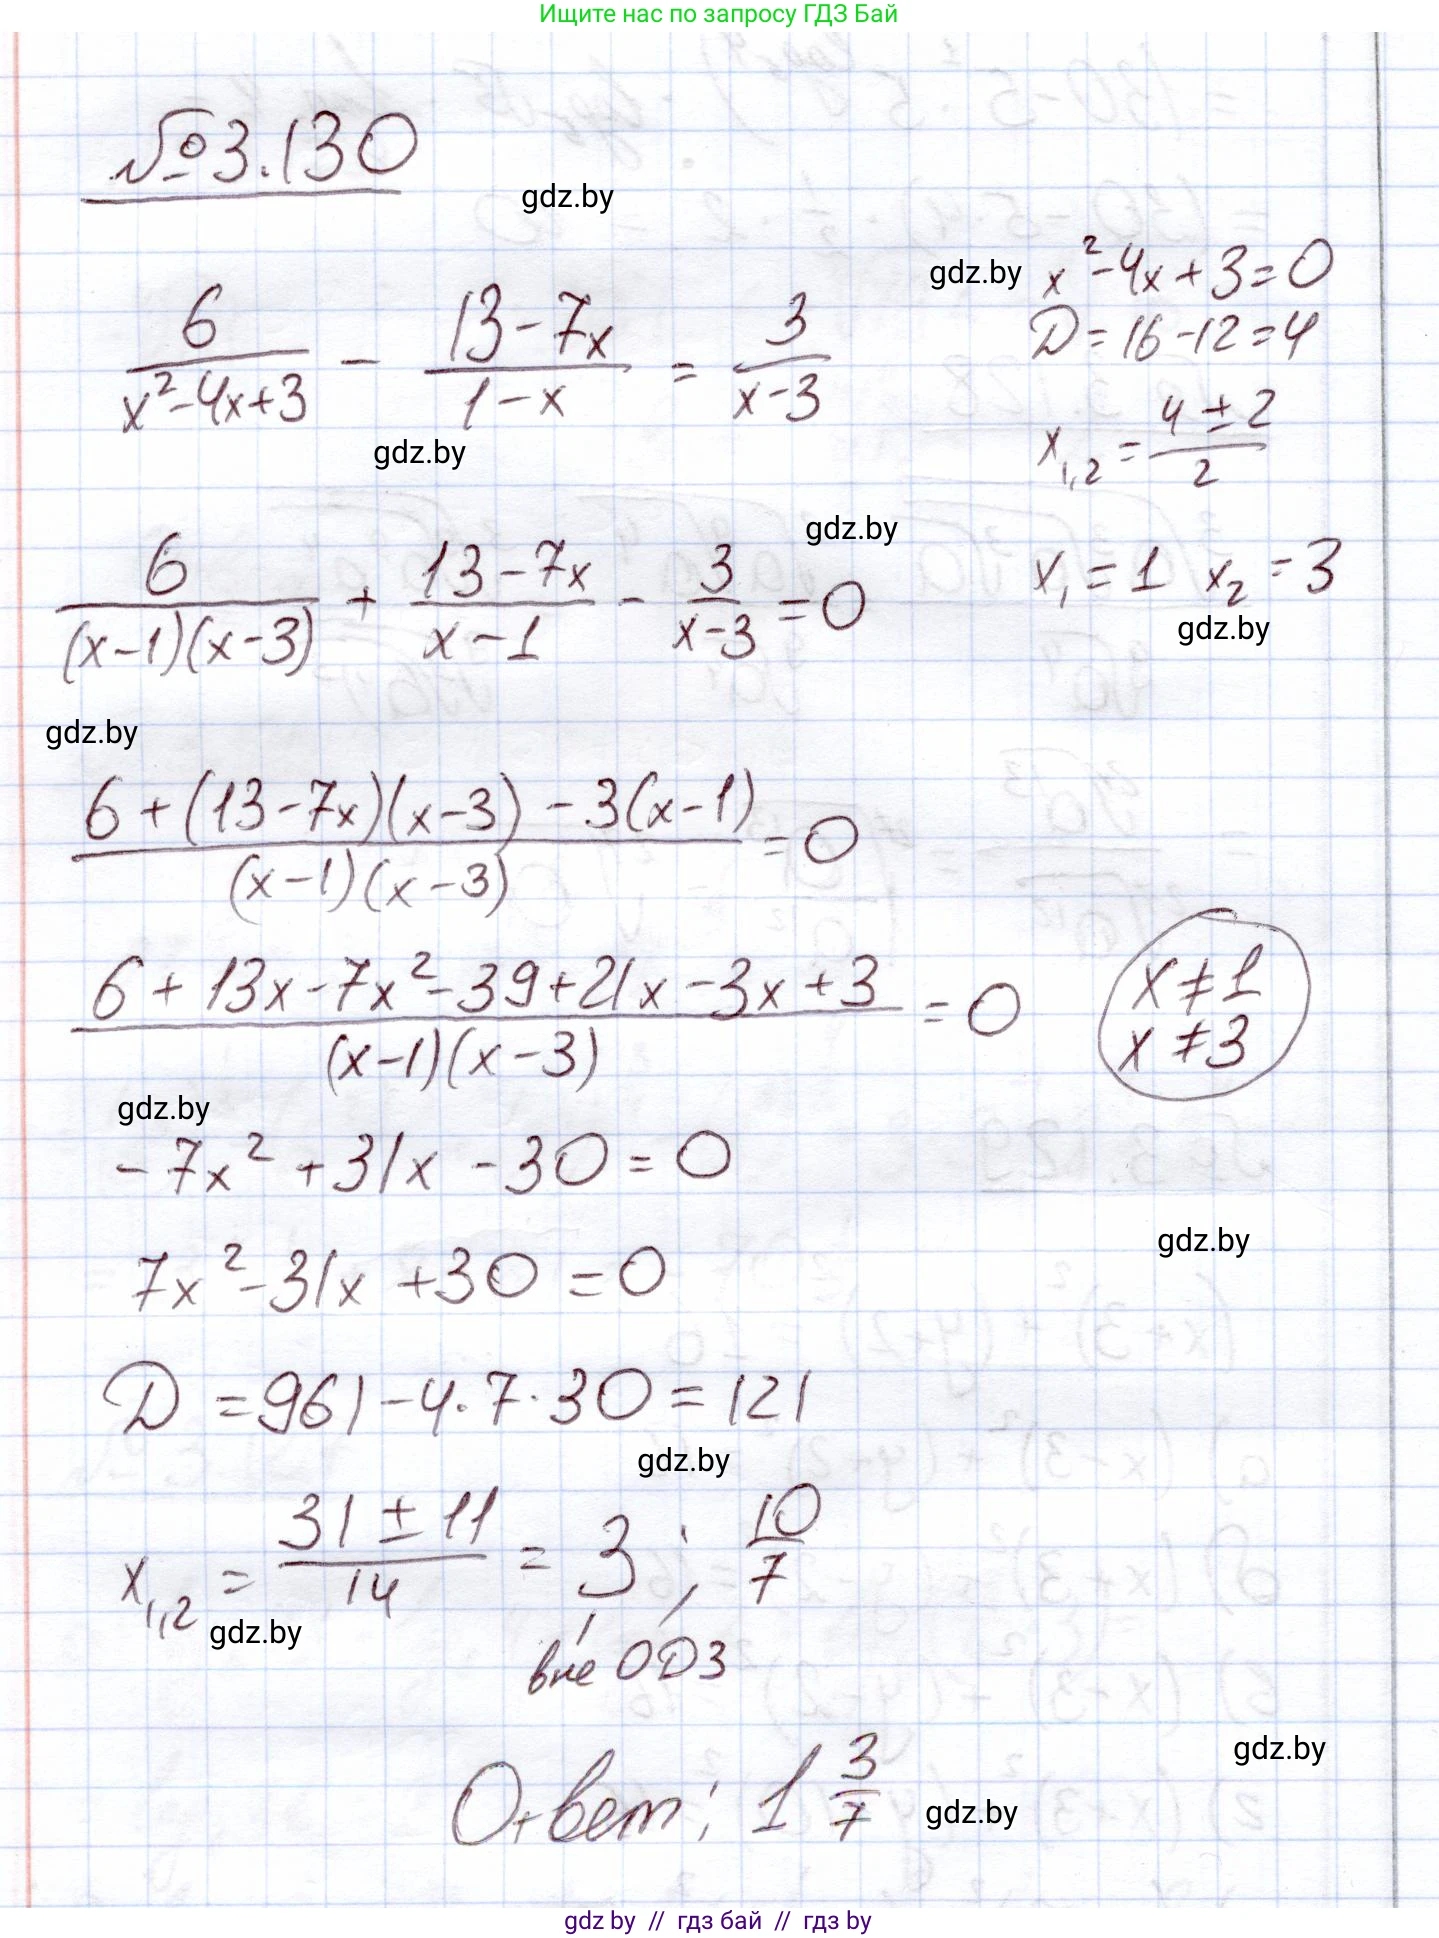 Ищите нас по запросу ГДЗ Бай
№3.130
gdz.by
6/(x²-4x+3) - (13-7x)/(1-x) = 3/(x-3)
gdz.by
x²-4x+3=0
D=16-12=4
x₁,₂ = (4±2)/2
x₁=1 x₂=3
gdz.by
gdz.by
6/((x-1)(x-3)) + (13-7x)/(x-1) - 3/(x-3) = 0
gdz.by
gdz.by
(6+(13-7x)(x-3)-3(x-1))/((x-1)(x-3)) = 0
(6+13x-7x²-39+21x-3x+3)/((x-1)(x-3)) = 0
x≠1
x≠3
gdz.by
-7x²+31x-30=0
gdz.by
7x²-31x+30=0
D=961-4·7·30=121
gdz.by
x₁,₂ = (31±11)/14 = 3; 10/7
gdz.by
вне ОДЗ
gdz.by
Ответ: 1 3/7
gdz.by
gdz by // гдз бай // гдз by